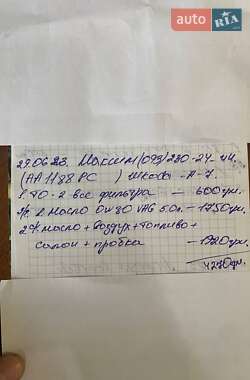 auto RIA.com
29.06.23. Максим (093) 230-24-44.
(АА1188РС) Шкода-А-7.
1. ТО-2 все фильтра — 600грн.
д/масло 0W30 VAG 5.0л. — 1750грн.
2ф/масло+воздух+топливо+
салон+пробка — 1920грн.
4270грн.